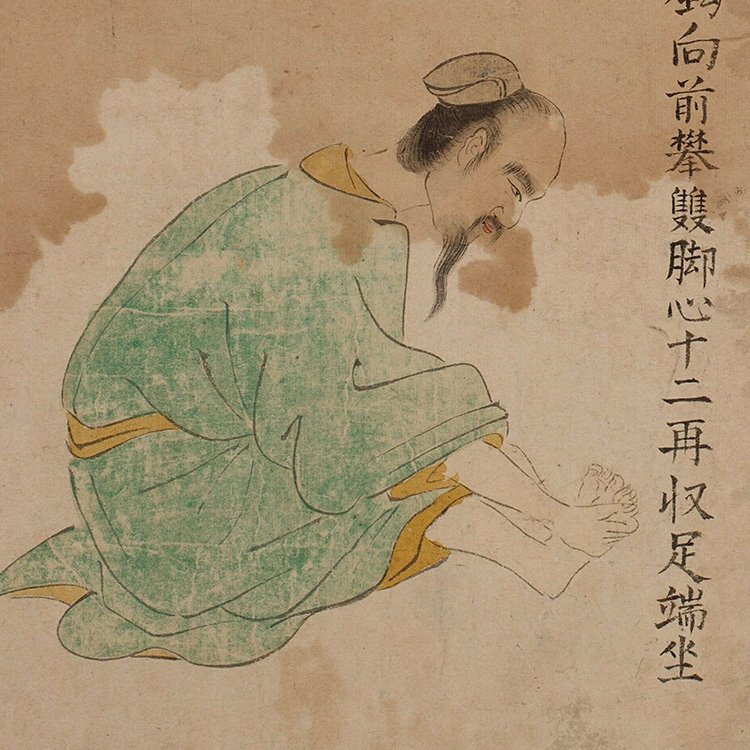 向前攀雙脚心十二再収足端坐